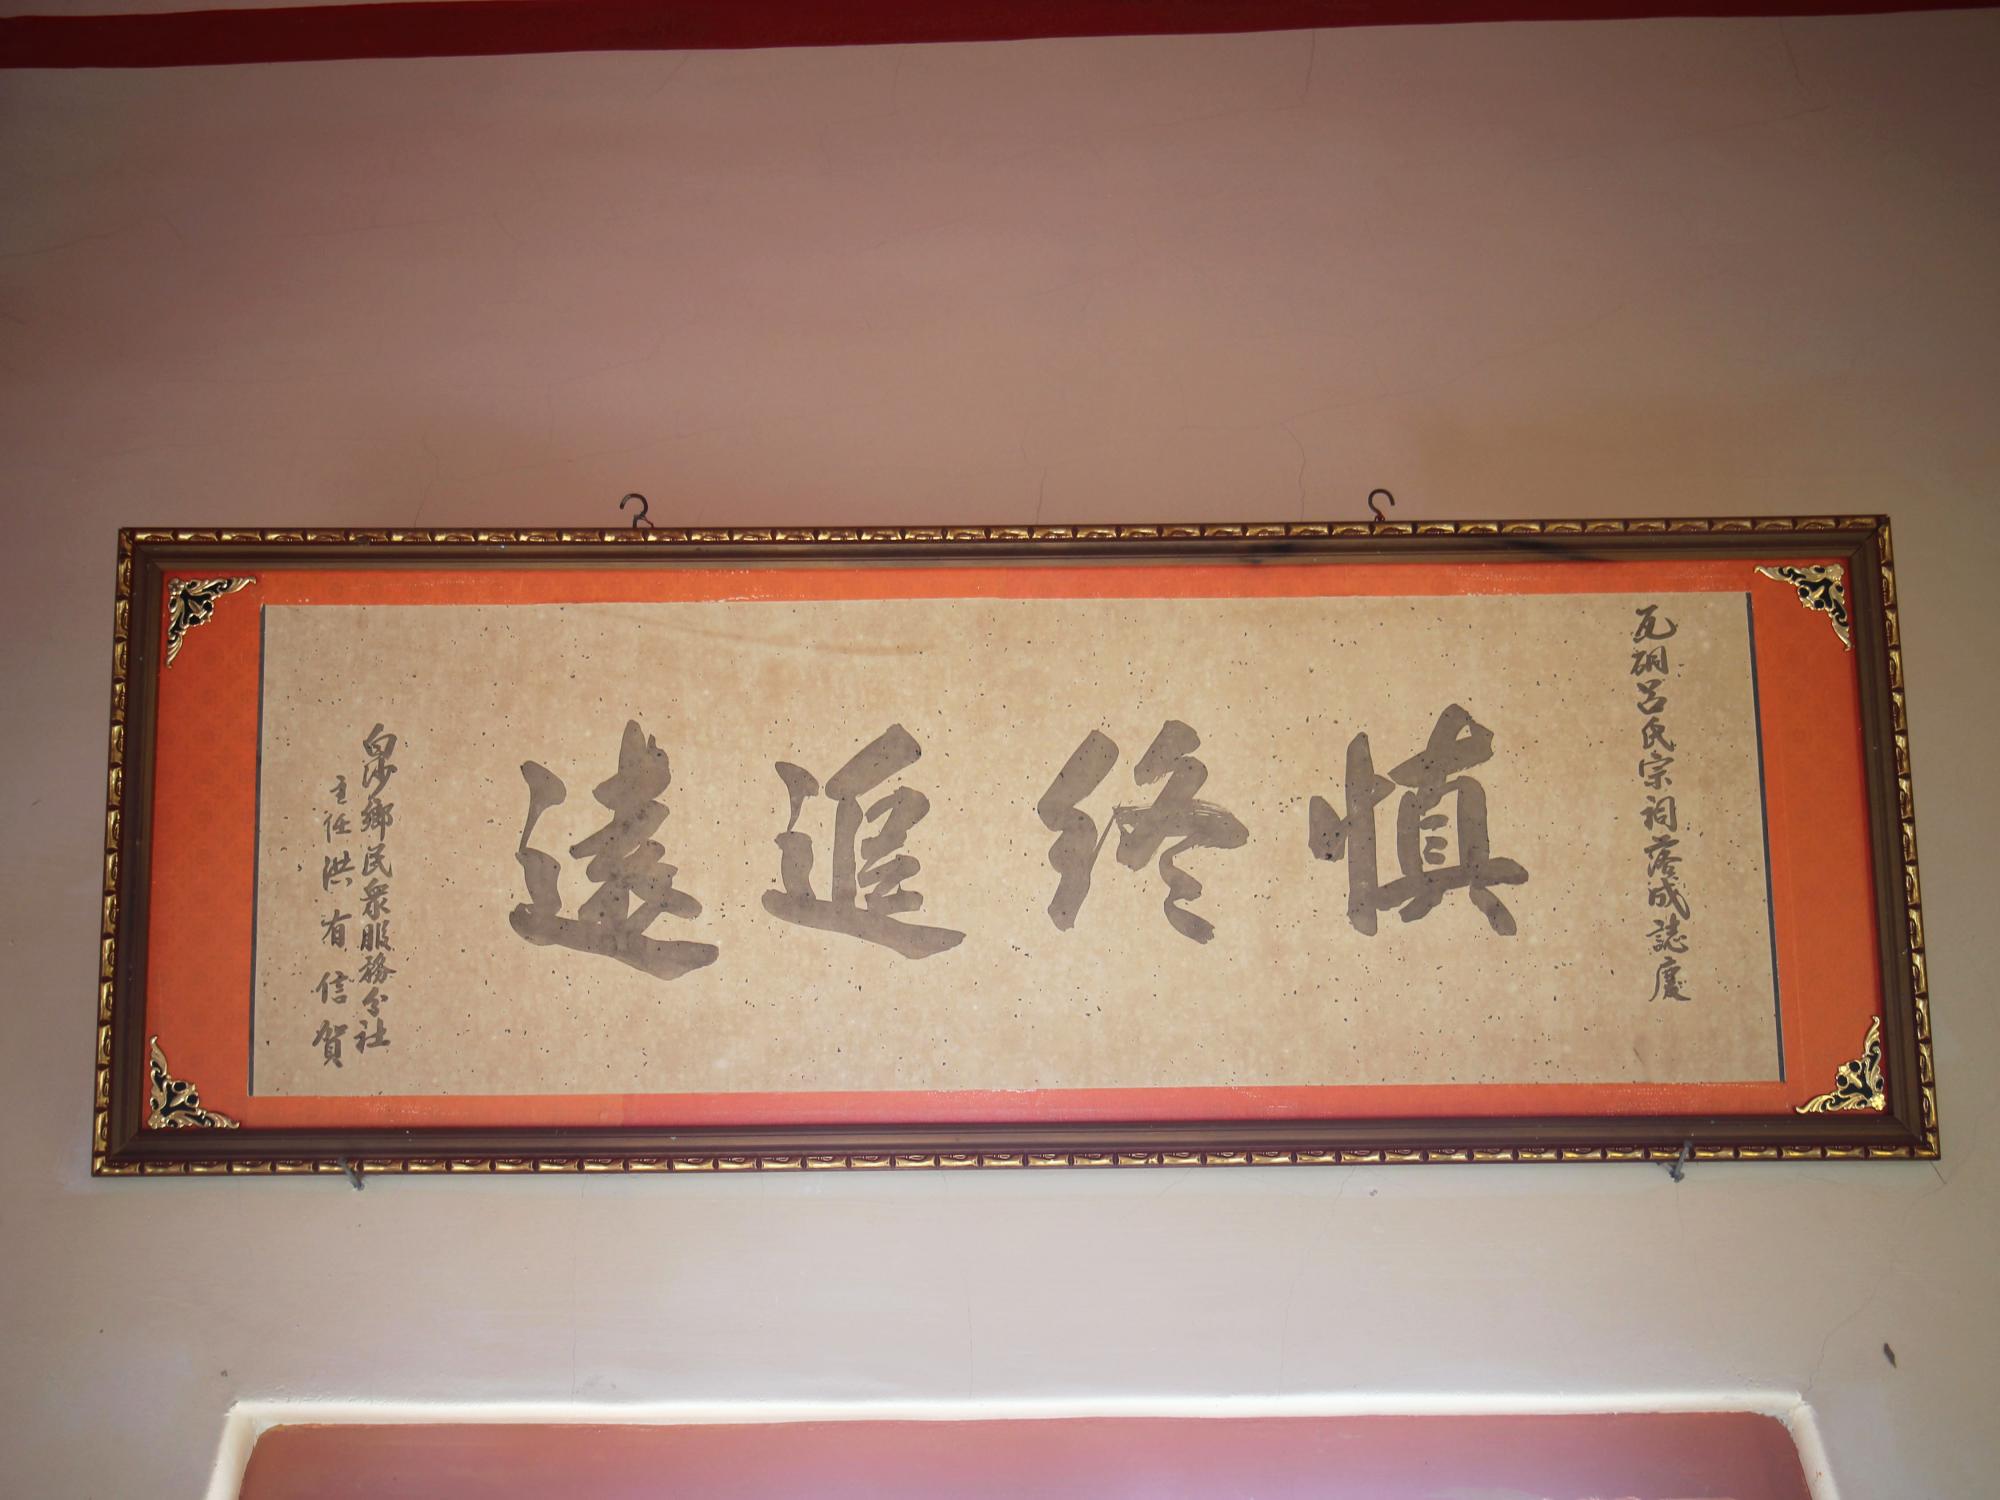 瓦硐呂氏宗祠落成誌慶
慎終追遠
白沙鄉民眾服務分社
主任洪有信賀